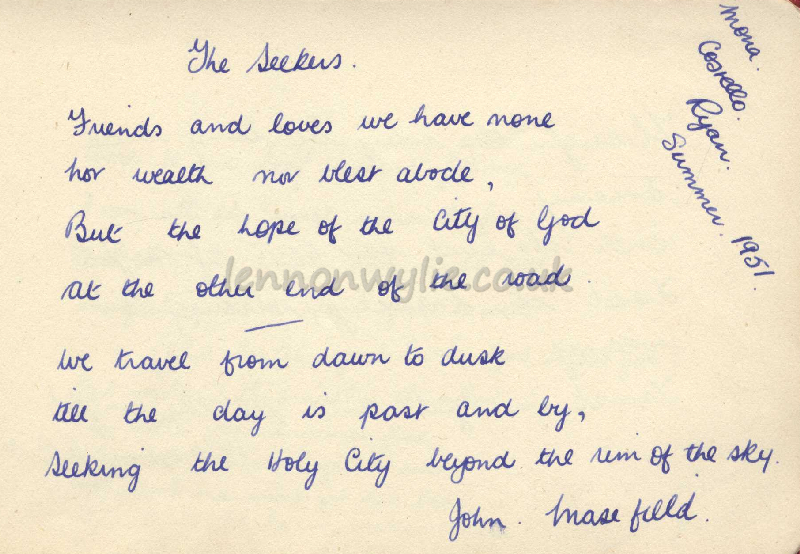 The Seekers.
Friends and loves we have none
nor wealth nor blest abode,
But the hope of the City of God
at the other end of the road.
We travel from dawn to dusk
till the day is past and by,
Seeking the Holy City beyond the rim of the sky.
John. Masefield.
Mona.
Costello.
Ryan.
Summer. 1951.
lennonwylie.co.uk